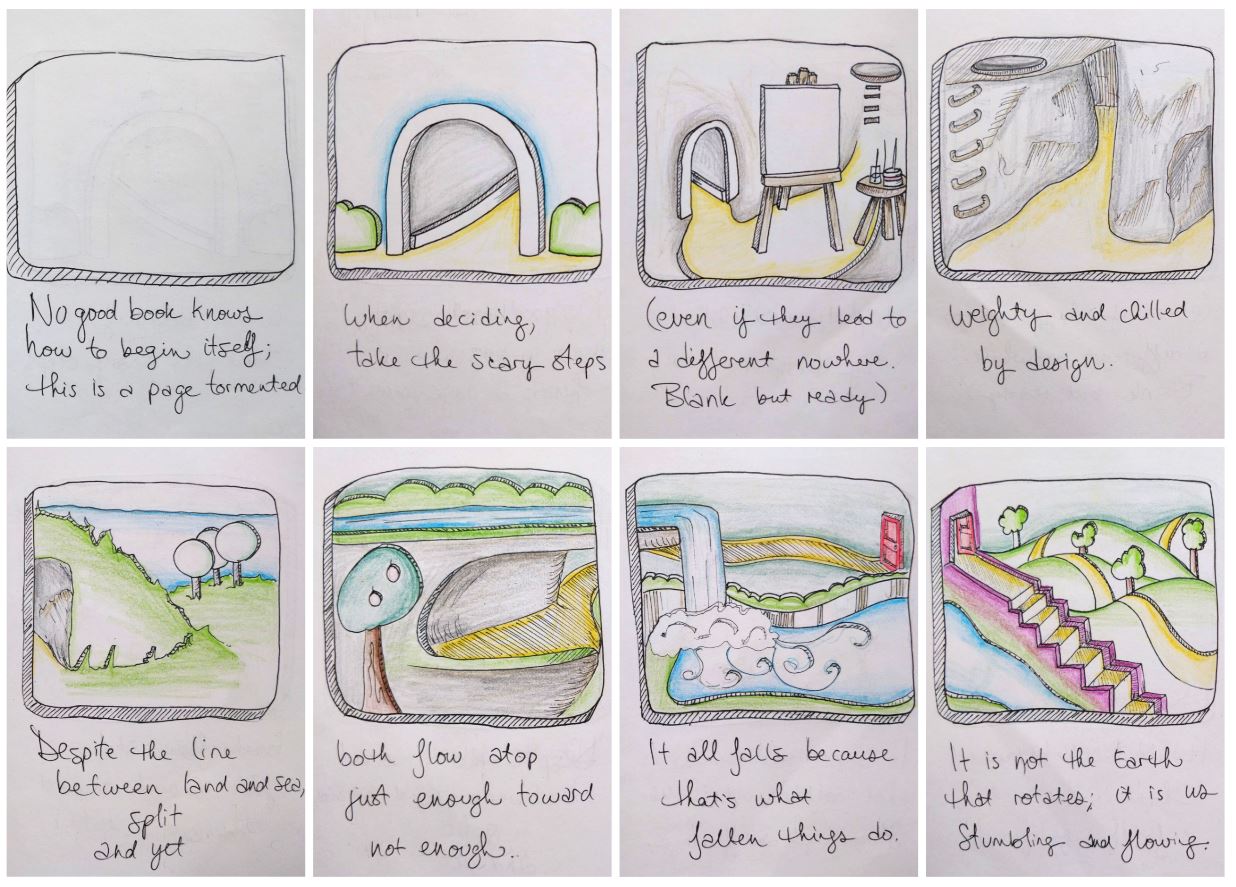 No good book knows
how to begin itself;
this is a page tormented
When deciding,
take the scary steps
(even if they lead to
a different nowhere.
Blank but ready)
weighty and chilled
by design.
Despite the line
between land and sea,
split
and yet
both flow atop
just enough toward
not enough..
It all falls because
that's what
fallen things do.
It is not the Earth
that rotates; it is us
stumbling and flowing.